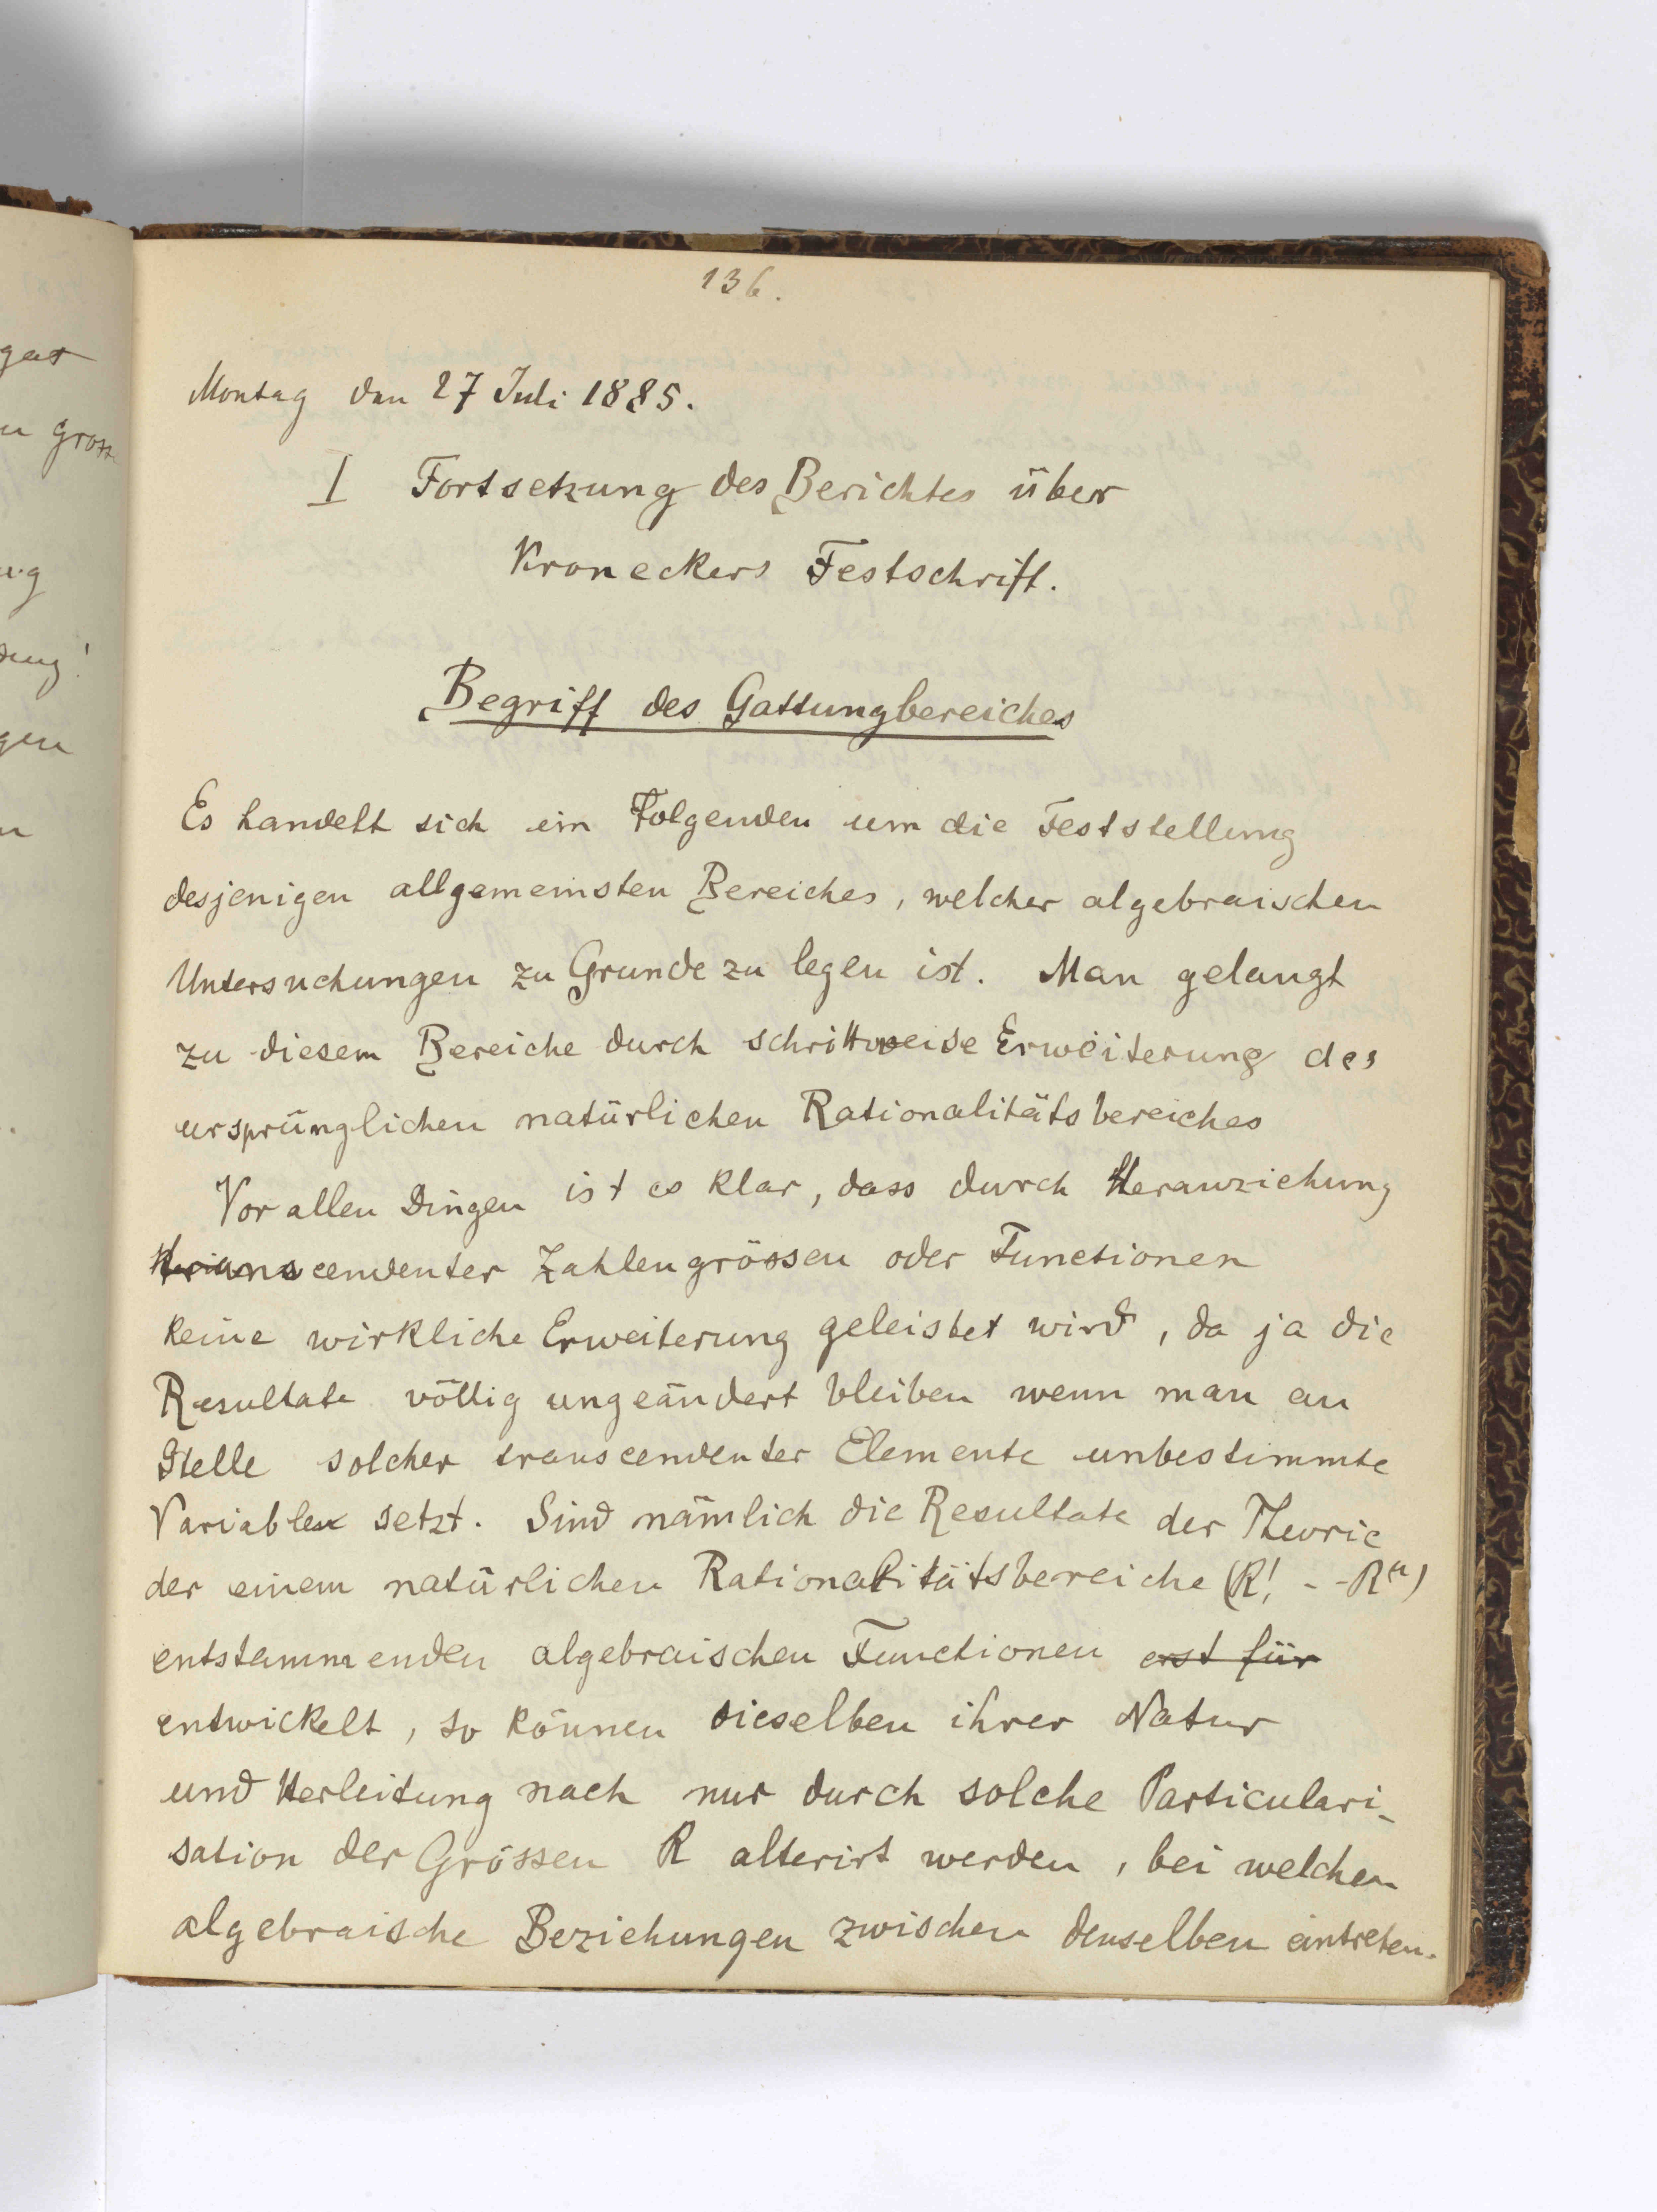 136.
Montag den 27 Juli 1885.
I Fortsetzung des Berichtes über
Kroneckers Festschrift.
Begriff des Gattungbereiches
Es handelt sich im Folgenden um die Feststellung
desjenigen allgemeinsten Bereiches, welcher algebraischen
Untersuchungen zu Grunde zu legen ist. Man gelangt
zu diesem Bereiche durch schrittweise Erweiterung des
ursprünglichen natürlichen Rationalitätsbereiches
Vor allen Dingen ist es klar, dass durch Heranziehung
transcendenter Zahlengrössen oder Functionen
keine wirkliche Erweiterung geleistet wird, da ja die
Resultate völlig ungeändert bleiben wenn man an
Stelle solcher transcendenter Elemente unbestimmte
Variablen setzt. Sind nämlich die Resultate der Theorie
der einem natürlichen Rationalitätsbereiche (R', - - R⁽ⁿ⁾)
entstammenden algebraischen Functionen erst für
entwickelt, so können dieselben ihrer Natur
und Herleitung nach nur durch solche Particulari-
sation der Grössen R alterirt werden, bei welchen
algebraische Beziehungen zwischen denselben eintreten.
gar
n gross
ug
dung!
gen
n